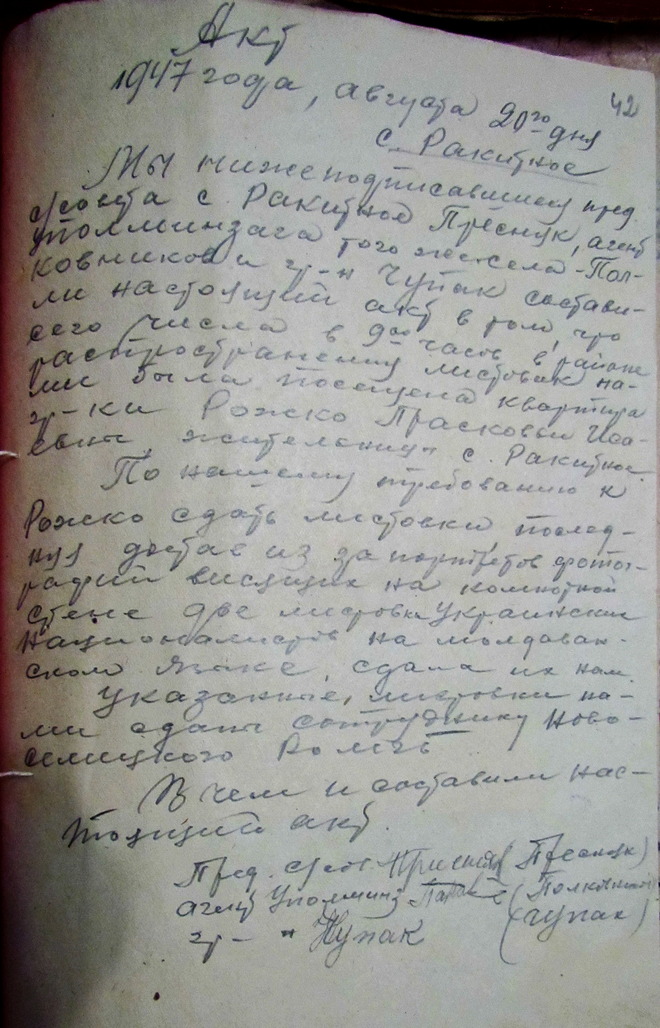 Акт
42
1947 года, августа 20го дня
с. Ракитное
Мы нижеподписавшиеся пред.
с/совета с Ракитное Преснюк, агент
уполминзага того же села - Пол-
ковников и гр-н Чупак состави-
ли настоящий акт в том, что
сего числа в 9оо часов в районе
распространения листовок на-
ми была посещена квартира
гр-ки Рожко Прасковьи Иса-
евны, жительницы с. Ракитное.
По нашему требованию к
Рожко сдать листовки, послед-
няя достав из за портретов фотог-
рафий висящих на комнатной
стене две листовки украинских
националистов на молдаван-
ском языке, сдала их нам.
Указанные, листовки на-
ми сданы сотруднику Ново-
селицкого РОМГБ
В чем и составили нас-
тоящий акт.
Пред. с/сов (Преснюк)
агент Уполминз
гр-н Чупак (Чупак)